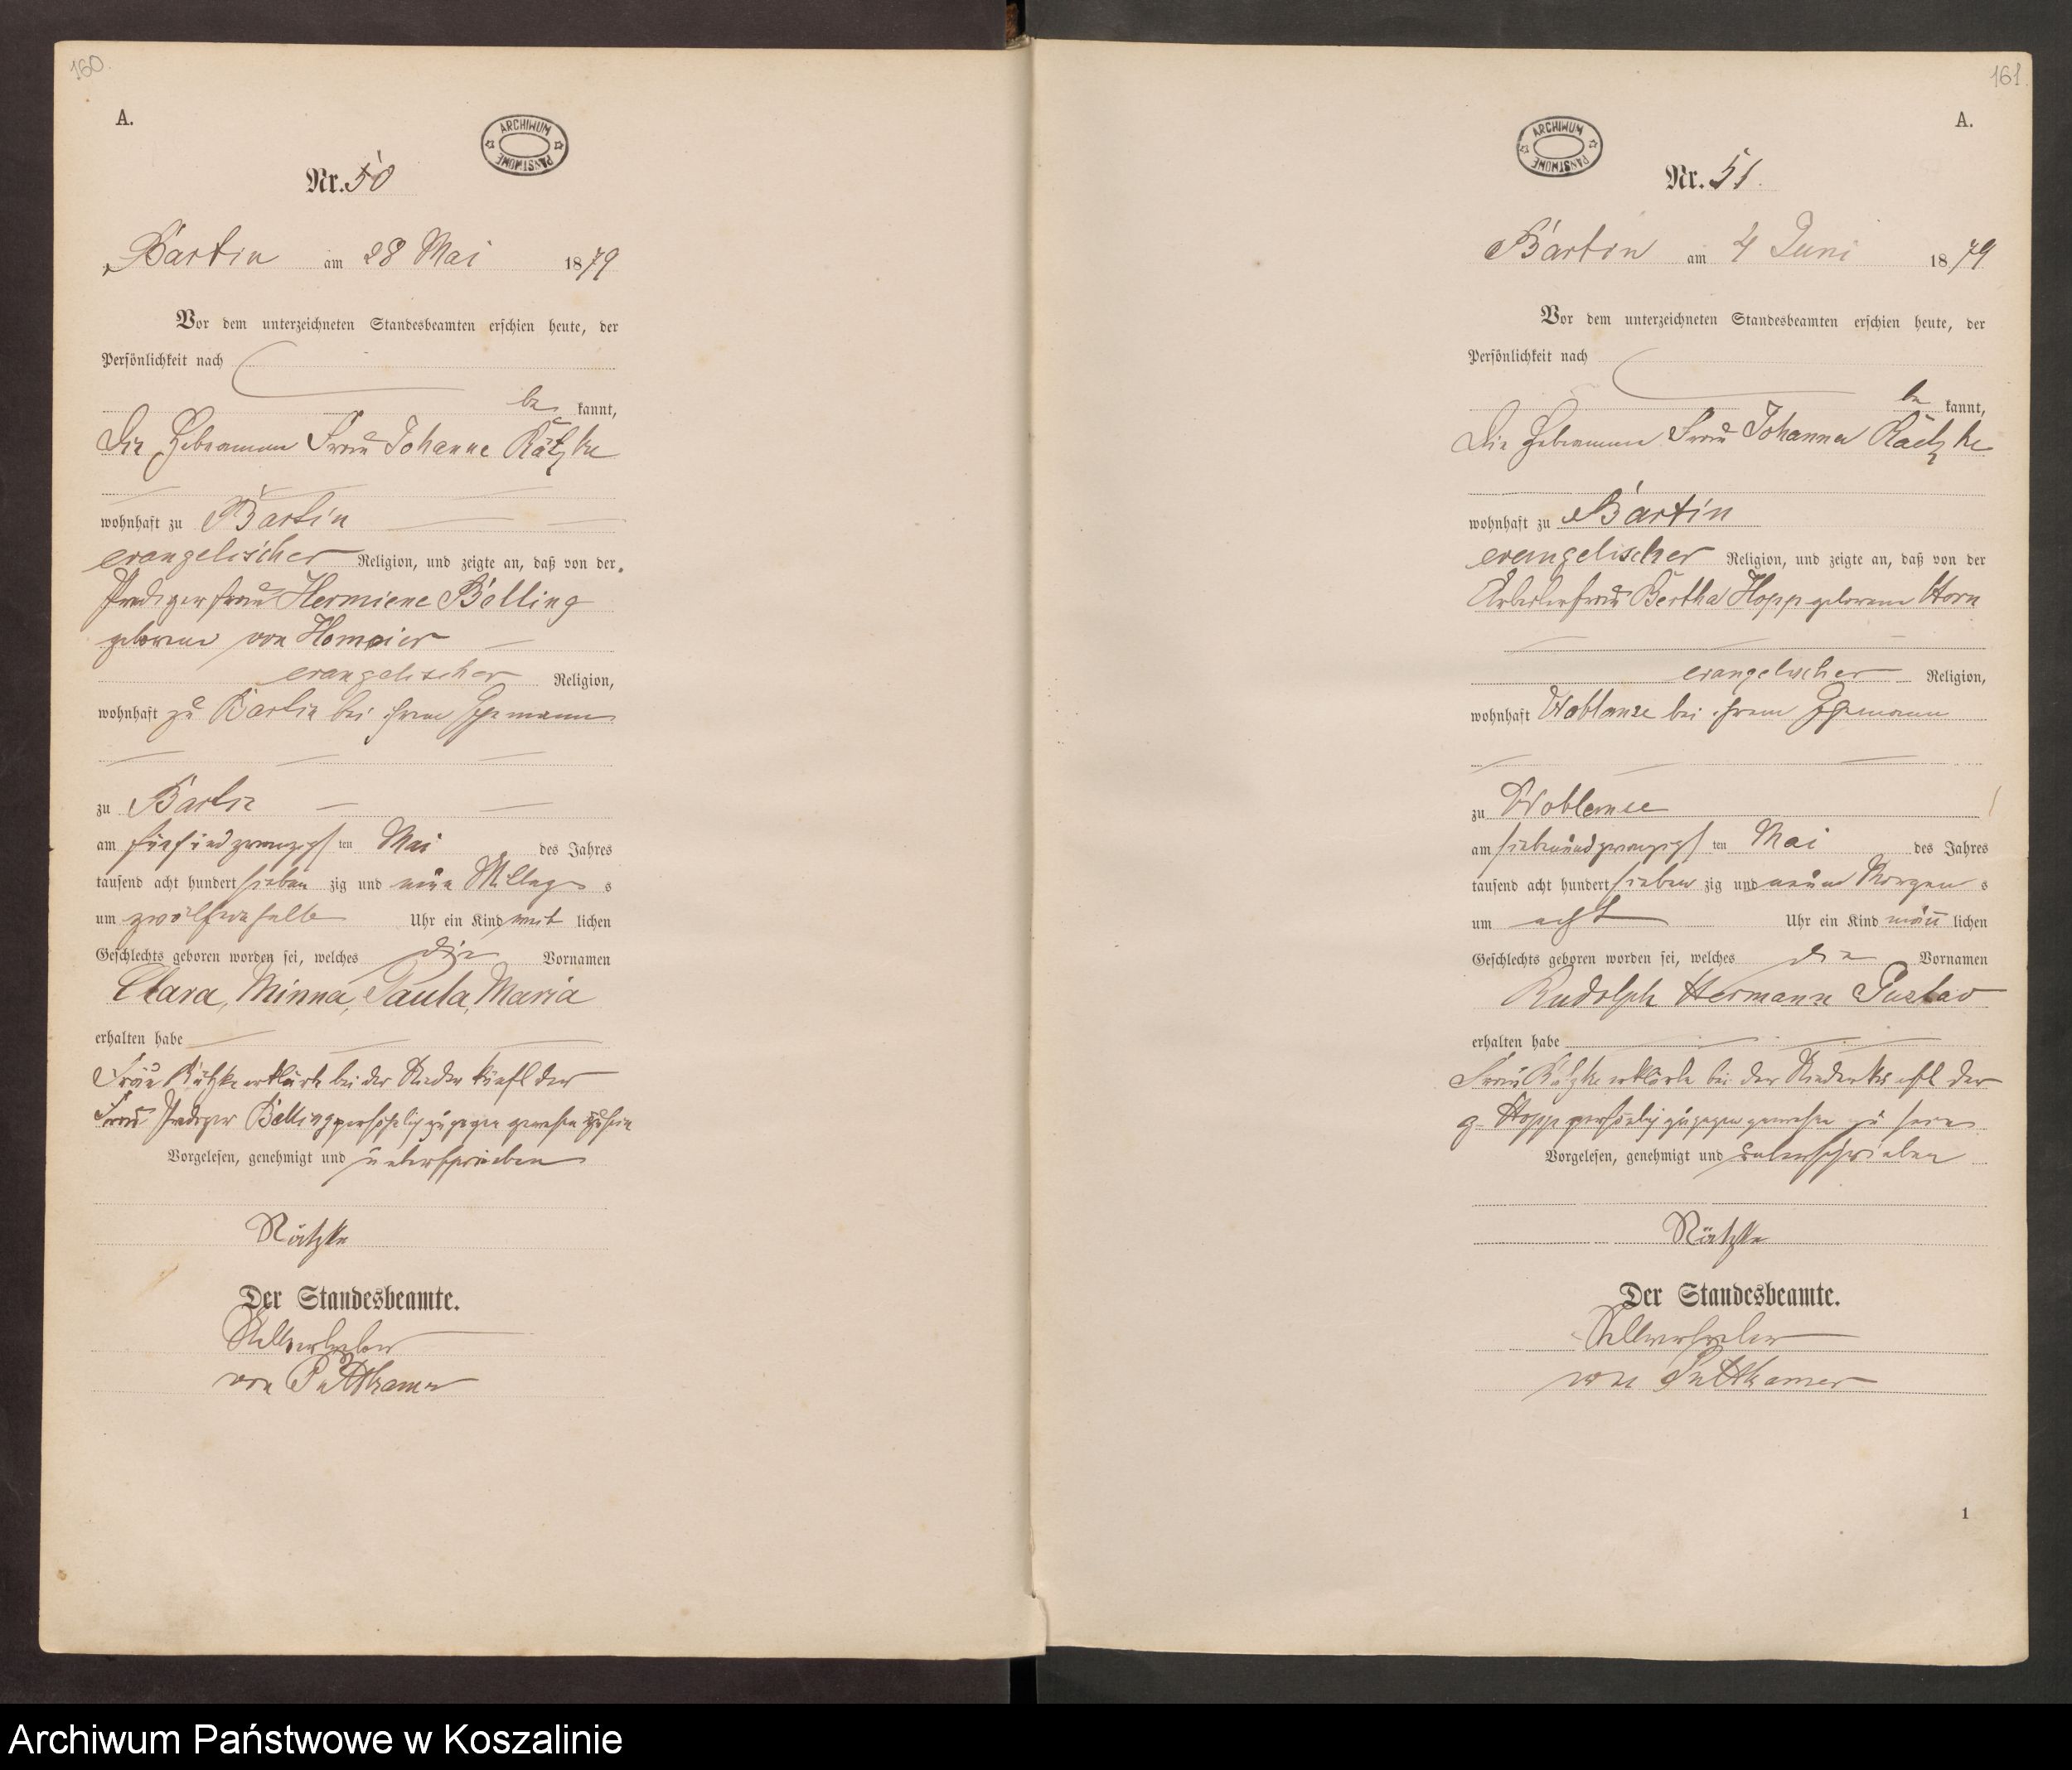 160.
A.
ARCHIWUM PAŃSTWOWE
Nr. 50
Bartin am 28 Mai 1879
Vor dem unterzeichneten Standesbeamten erschien heute, der
Persönlichkeit nach
be kannt,
die Hebeamme Frau Johanne Rätzke
wohnhaft zu Bartin
evangelischer Religion, und zeigte an, daß von der
Predigerfrau Hermiene Belling
geborene von Homeier
evangelischer Religion,
wohnhaft zu Bartin bei ihrem Ehemann
zu Bartin
am fünfundzwanzigsten Mai des Jahres
tausend acht hundert sieben zig und neun Mittags
um zwölfeinhalb Uhr ein Kind weib lichen
Geschlechts geboren worden sei, welches die Vornamen
Clara, Minna, Paula, Maria
erhalten habe
Frau Rätzke erklärte bei der Niederkunft der
Frau Prediger Belling persönlich zugegen gewesen zu sein
Vorgelesen, genehmigt und unterschrieben
Rätzke
Der Standesbeamte.
Stellvertreter
von Puttkamer
161.
A.
ARCHIWUM PAŃSTWOWE
Nr. 51.
Bartin am 4 Juni 1879
Vor dem unterzeichneten Standesbeamten erschien heute, der
Persönlichkeit nach
be kannt,
die Hebeamme Frau Johanna Raetzke
wohnhaft zu Bartin
evangelischer Religion, und zeigte an, daß von der
Arbeiterfrau Bertha Hopp geborene Horn
evangelischer Religion,
wohnhaft Woblanse bei ihrem Ehemann
zu Woblanse
am siebenundzwanzigsten Mai des Jahres
tausend acht hundert sieben zig und neun Morgens
um acht Uhr ein Kind männ lichen
Geschlechts geboren worden sei, welches die Vornamen
Rudolph Hermann Gustav
erhalten habe
Frau Rätzke erklärte bei der Niederkunft der
g. Hopp persönlich zugegen gewesen zu sein
Vorgelesen, genehmigt und unterschrieben
Rätzke
Der Standesbeamte.
Stellvertreter
von Puttkamer
1
Archiwum Państwowe w Koszalinie